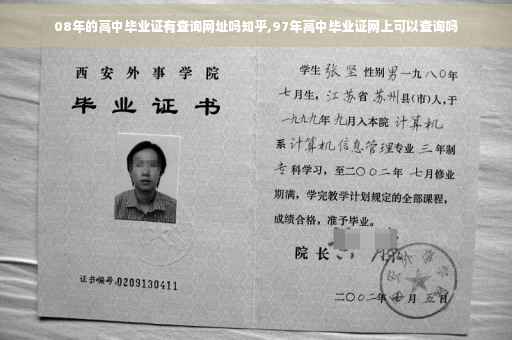 08年的高中毕业证有查询网址吗知乎,97年高中毕业证网上可以查询吗
西安外事学院
毕业证书
证书编号:0209130411
学生 张坚 性别 男 一九八〇年
七月生, 江苏省 苏州县(市)人,于
一九九九年 九月入本院 计算机
系 计算机信息管理专业 三 年制
专科学习, 至二〇〇二年 七月修业
期满, 学完教学计划规定的全部课程,
成绩合格, 准予毕业。
院长
二〇〇二年 七月 五日